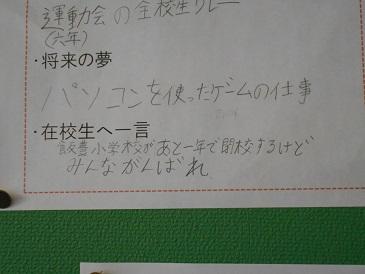 運動会の全校生リレー
(六年)
・将来の夢
パソコンを使ったゲームの仕事
・在校生へ一言
飯豊小学校があと一年で閉校するけど
みんながんばれ